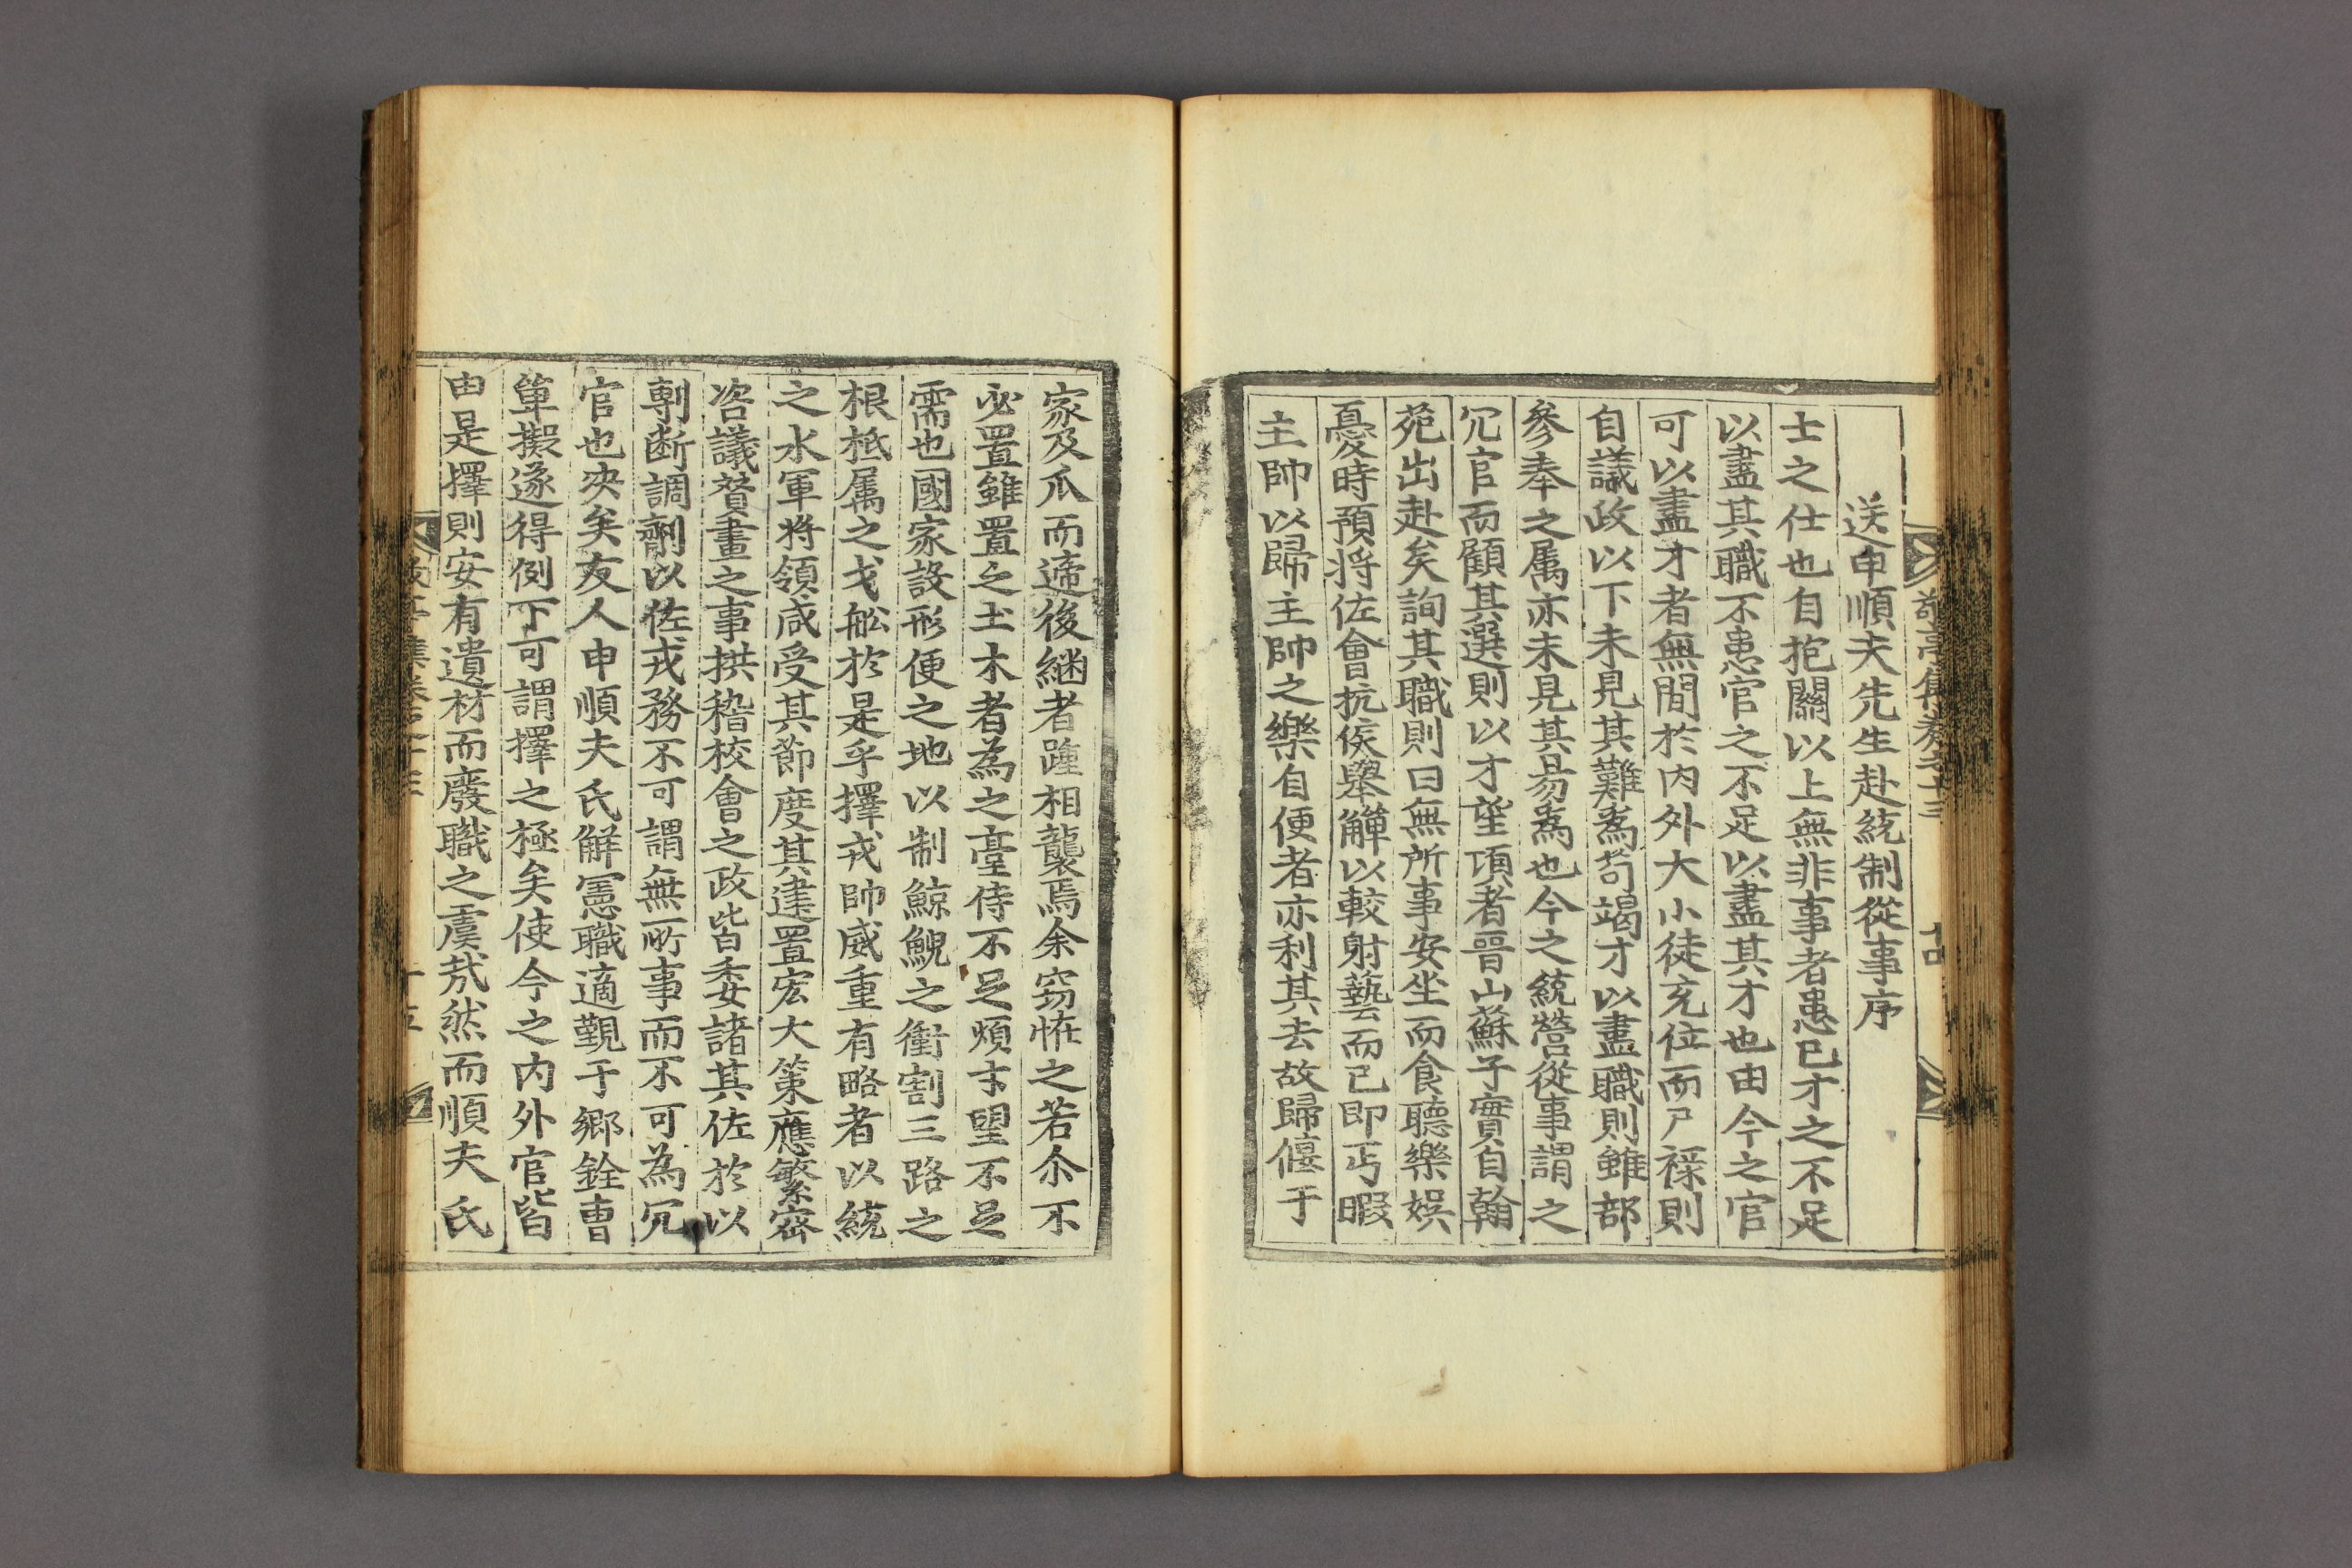 敬亭集卷之十三
十四
送申順夫先生赴統制從事序
士之仕也自抱關以上無非事者患已才之不足
以盡其職不患官之不足以盡其才也由今之官
可以盡才者無間於內外大小徒充位而尸祿則
自議政以下未見其難爲苟竭才以盡職則雖部
參奉之属亦未見其昜爲也今之統營從事謂之
冗官而顧其選則以才望項者晉山蘇子實自翰
苑出赴矣詢其職則曰無所事安坐而食聽樂娯
憂時預将佐會抗侯舉觶以較射藝而已即丐暇
主帥以歸主帥之樂自便者亦利其去故歸偃于
家及瓜而遞後継者踵相襲焉余窃恠之若尒不
必置雖置之土木者為之臺侍不足煩才望不足
需也國家設形便之地以制鯨鯢之衝割三路之
根柢属之戈舩於是乎擇戎帥威重有略者以統
之水軍将領咸受其節度其建置宏大策應繁密
咨議贊畫之事拱稽校會之政皆委諸其佐於以
剸断調劑以佐戎務不可謂無所事而不可為冗
官也决矣友人申順夫氏解憲職適覲于鄉銓曹
單擬遂得例下可謂擇之極矣使今之内外官皆
由是擇則安有遺材而廢職之虞㢤然而順夫氏